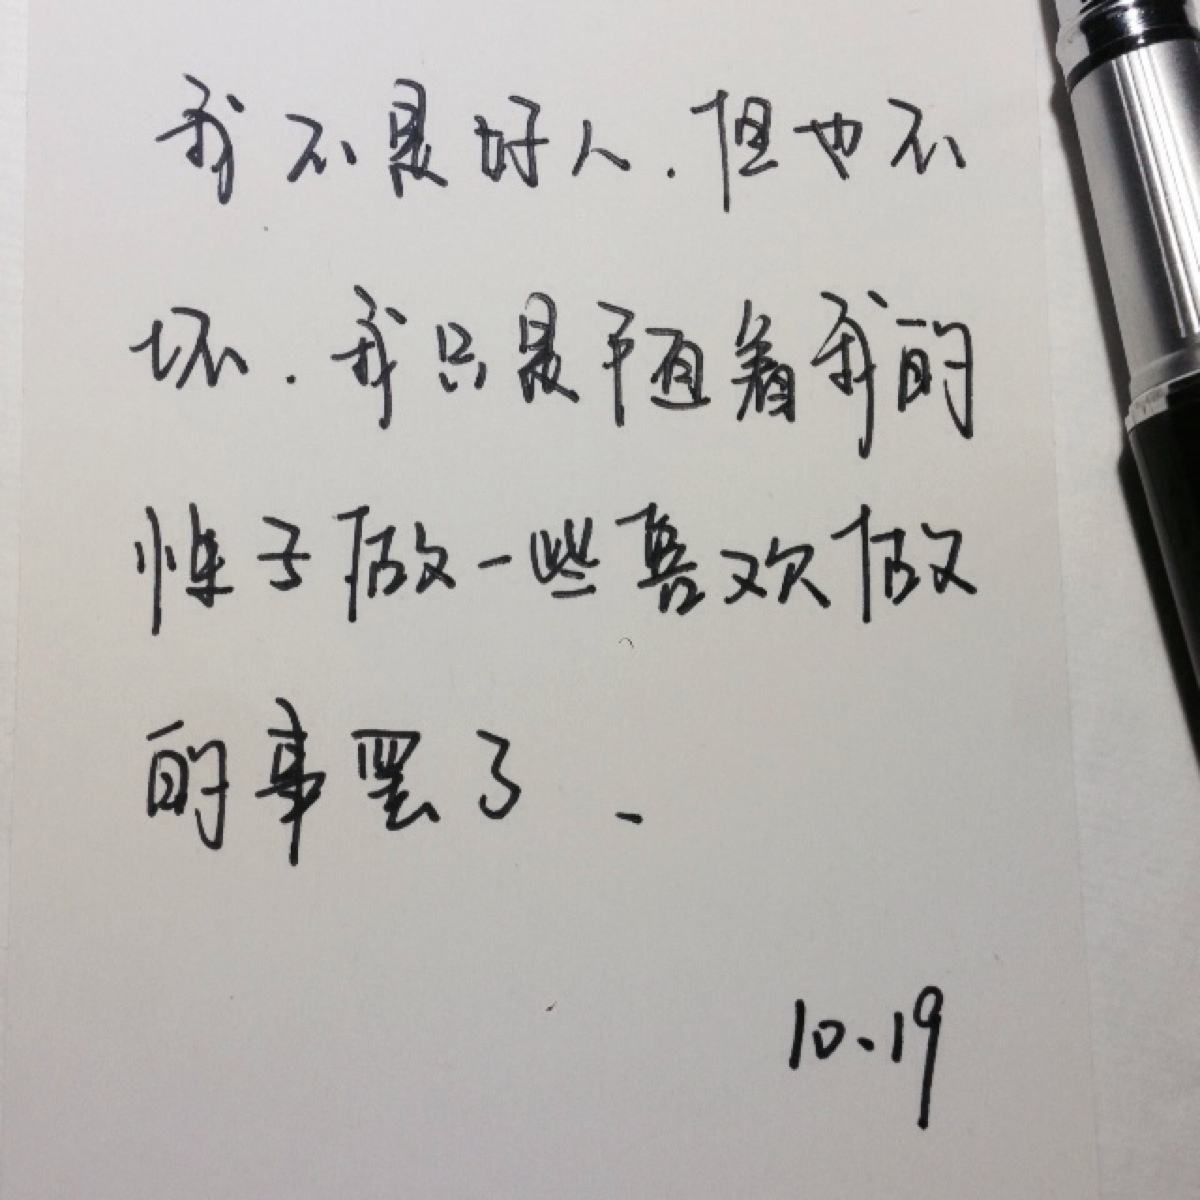 我不是好人.但也不
坏.我只是随着我的
性子做一些喜欢做
的事罢了、
10、19